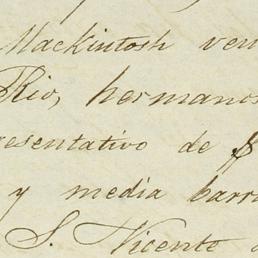 Mackintosh ven
Rio, hermanos
resentativo de $
y media barra
S. Vicente